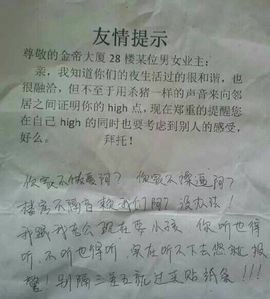 友情提示
尊敬的金帝大厦28楼某位男女业主:
亲,我知道你们的夜生活过的很和谐,也
很融洽,但不至于用杀猪一样的声音来向邻
居之间证明你的high点,现在郑重的提醒您
在自己high的同时也要考虑到别人的感受,
好么。 拜托!
你家不做爱阿?你家不操逼阿?
楼房不隔音赖我们阿?没办法!
我跟我老公现在要小孩 你听也得
听,不听也得听 实在听不下去您就报
警!别隔三差五就过来贴纸条!!!